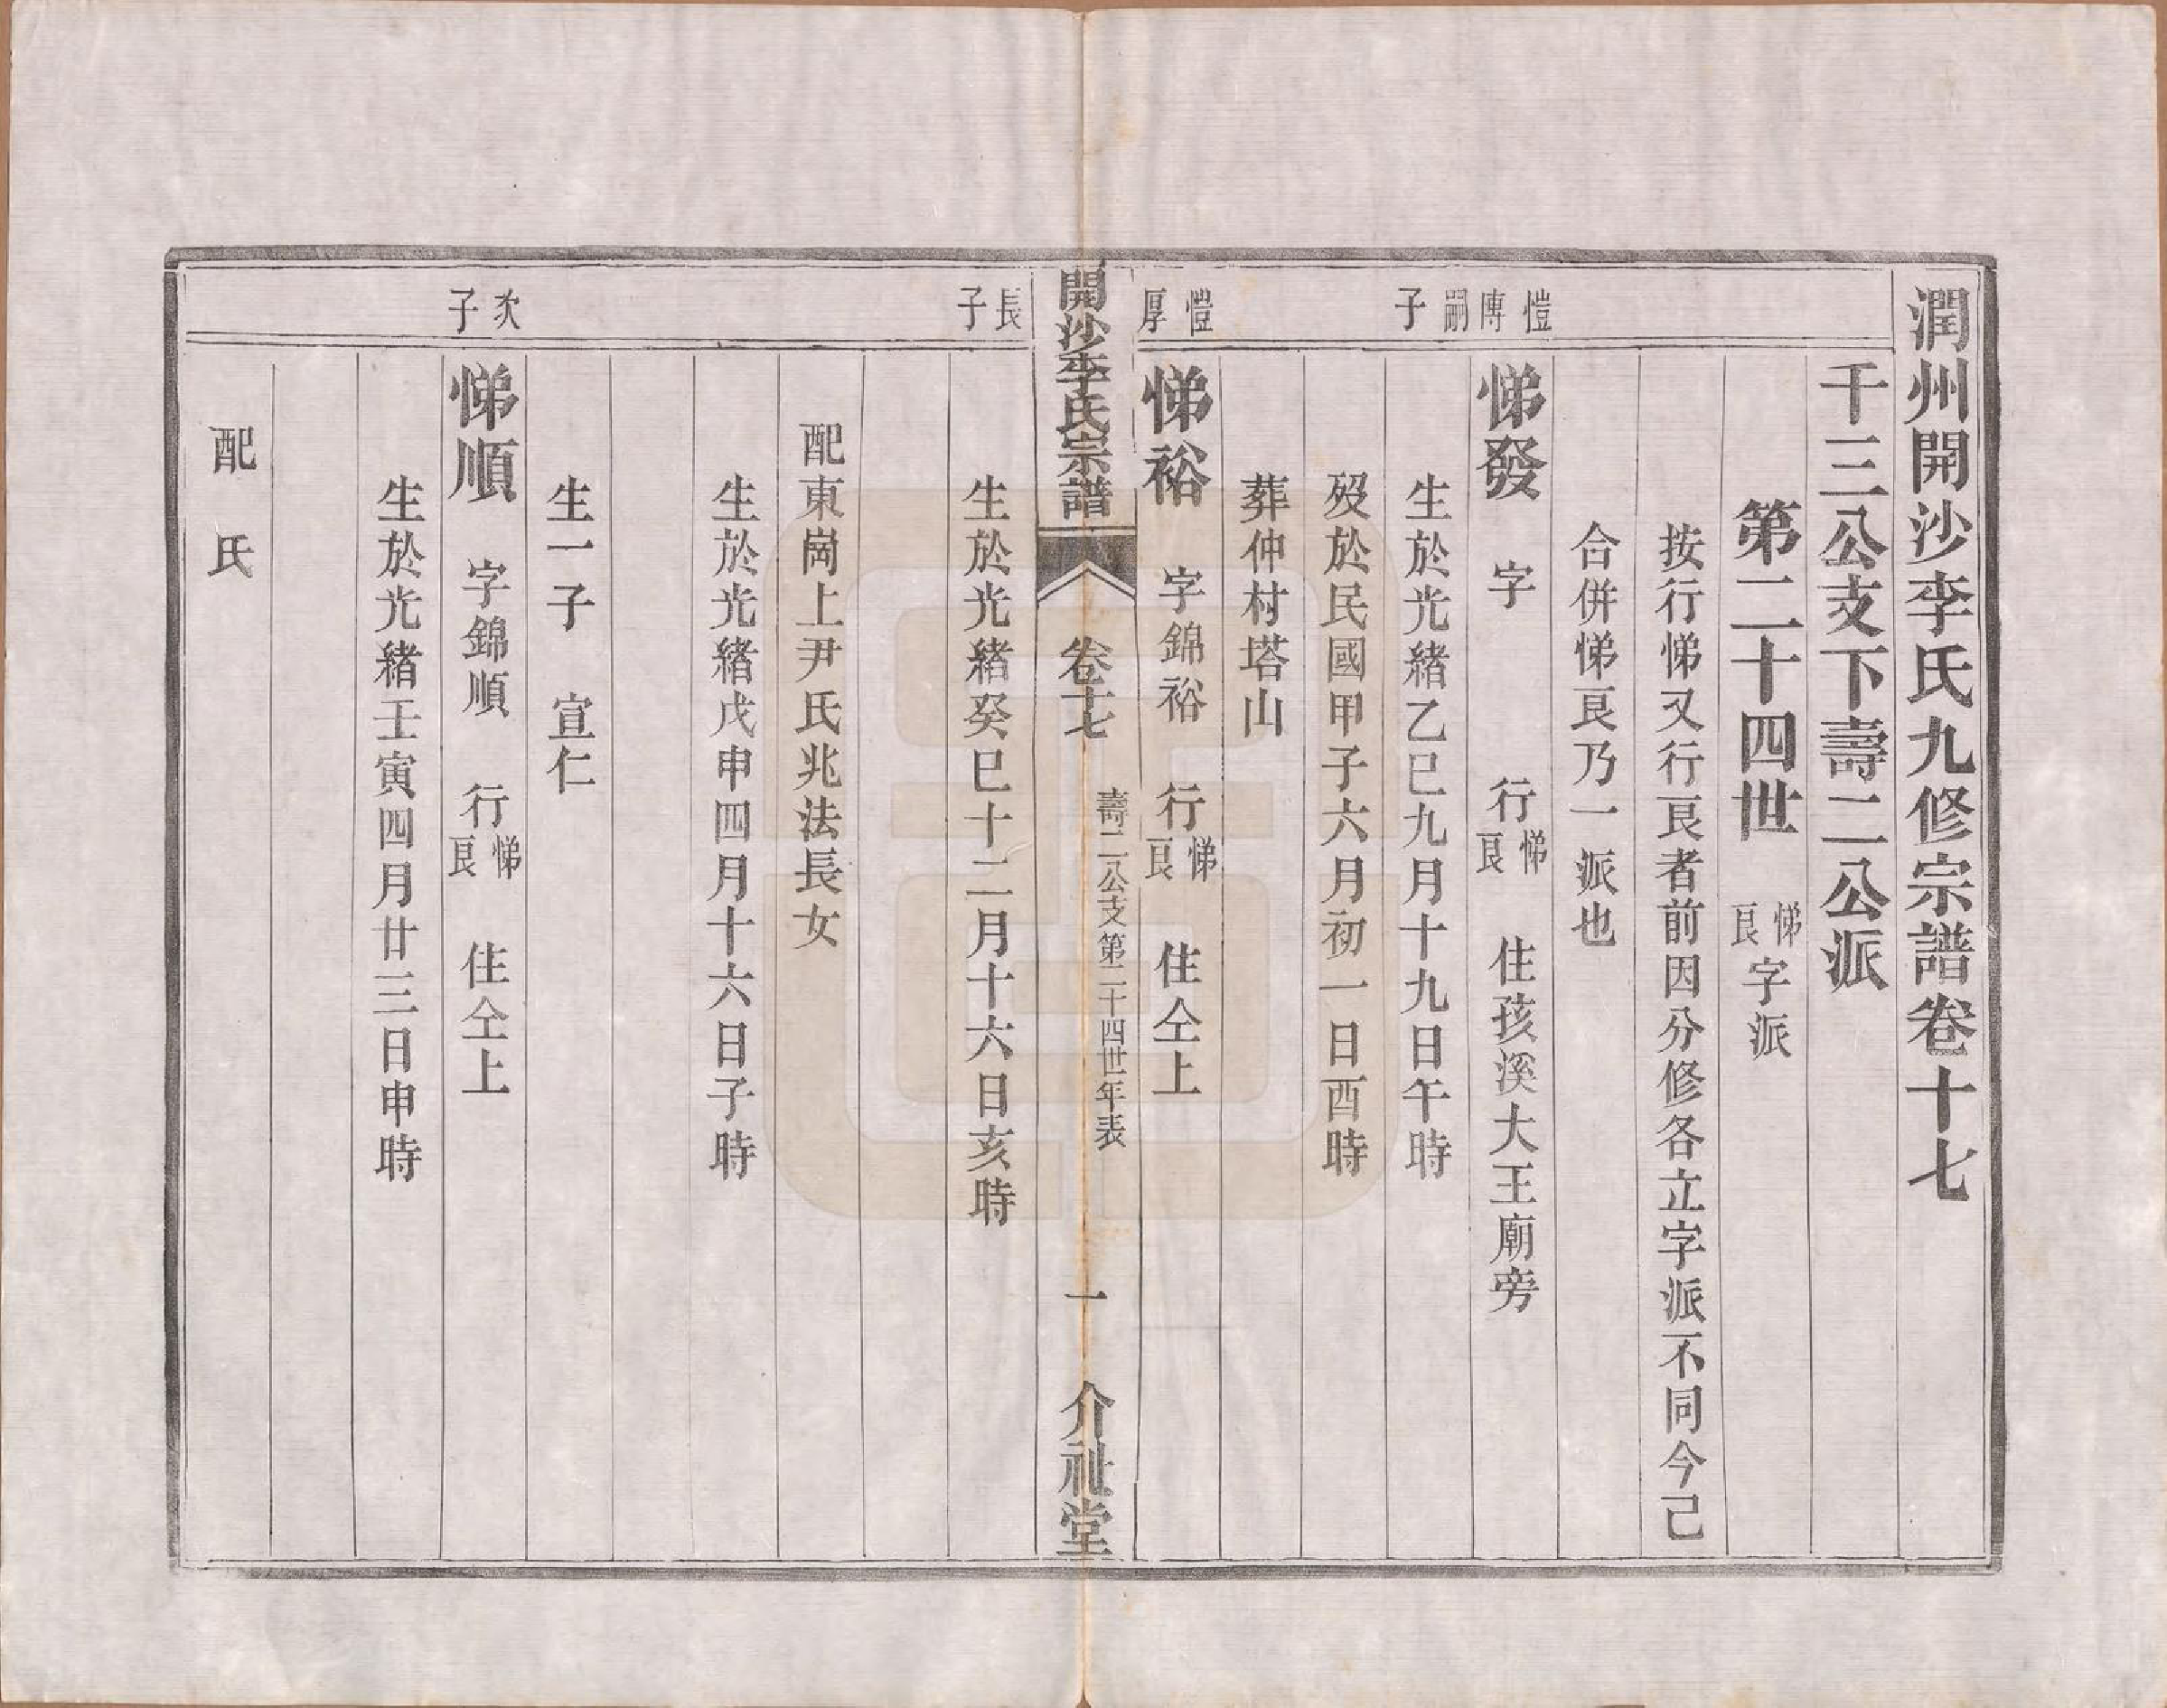 潤州開沙李氏九修宗譜卷十七
千三公支下壽二公派
第二十四世 悌艮字派
按行悌又行艮者前因分修各立字派不同今己
合併悌艮乃一派也
愷傳嗣子
悌發 字 行悌艮 住孩溪大王廟旁
生於光緒乙巳九月十九日午時
歿於民國甲子六月初一日酉時
葬仲村塔山
愷厚
悌裕 字錦裕 行悌艮 住仝上
開沙李氏宗譜 卷十七 壽二公支第二十四世年表 一 介祉堂
長子
生於光緒癸巳十二月十六日亥時
配東崗上尹氏兆法長女
生於光緒戊申四月十六日子時
生一子 宣仁
次子
悌順 字錦順 行悌艮 住仝上
生於光緒壬寅四月廿三日申時
配 氏